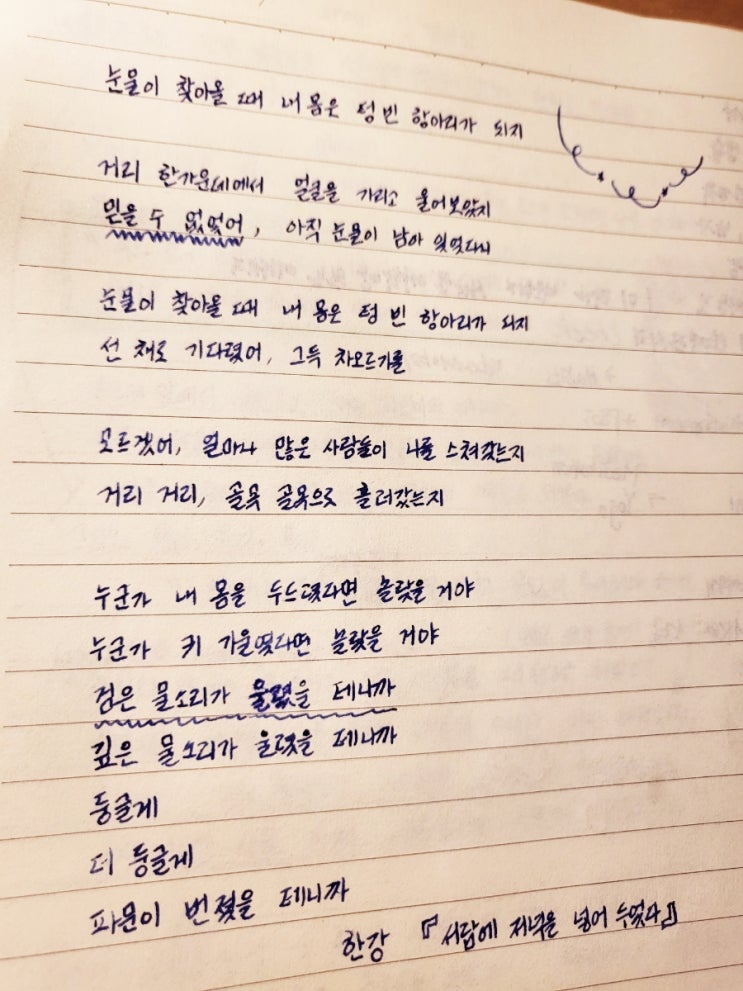 눈물이 찾아올 때 내 몸은 텅 빈 항아리가 되지
거리 한가운데에서 얼굴을 가리고 울어보았지
믿을 수 없었어, 아직 눈물이 남아 있었다니
눈물이 찾아올 때 내 몸은 텅 빈 항아리가 되지
선 채로 기다렸어, 그득 차오르기를
모르겠어, 얼마나 많은 사람들이 나를 스쳐갔는지
거리 거리, 골목 골목으로 흘러갔는지
누군가 내 몸을 두드렸다면 놀랐을 거야
누군가 귀 기울였다면 놀랐을 거야
검은 물소리가 울렸을 테니까
깊은 물소리가 울렸을 테니까
둥글게
더 둥글게
파문이 번졌을 테니까
한강 『서랍에 저녁을 넣어 두었다』